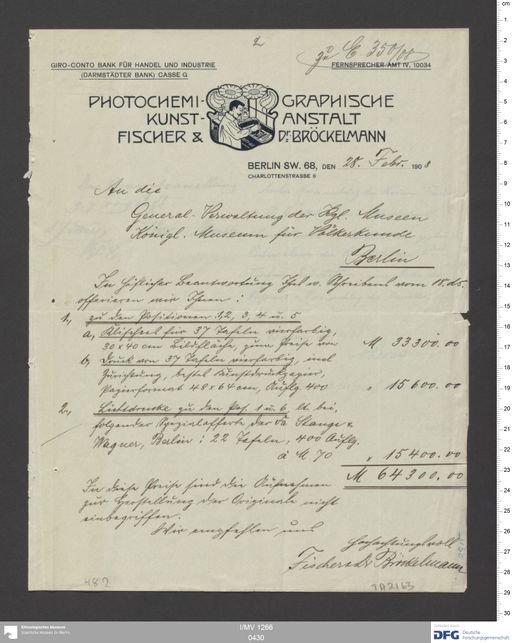 2
zu E. 350/08
GIRO-CONTO BANK FÜR HANDEL UND INDUSTRIE
(DARMSTÄDTER BANK) CASSE G
FERNSPRECHER-AMT IV, 10034
PHOTOCHEMI- GRAPHISCHE
KUNST- ANSTALT
FISCHER & Dr. BRÖCKELMANN
BERLIN SW. 68, DEN 28. Febr. 1908
CHARLOTTENSTRASSE 6
An die
General-Verwaltung der Kgl. Museen
Königl. Museum für Völkerkunde
Berlin
In höflicher Beantwortung Ihres w. Schreibens vom 18. ds.
offerieren wir Ihnen:
1., zu den Positionen 1, 2, 3, 4 u. 5
a, Klischees für 37 Tafeln vierfarbig,
30 x 40 cm Bildfläche, zum Preise von M 33300.00
b, Druck von 37 Tafeln vierfarbig, incl.
Zurichtung, bestes Kunstdruckpapier,
Papierformat 48 x 64 cm, Auflg. 400 " 15600.00
2., Lichtdrucke zu den Pos. 1 u. 6, lt. bei-
folgender Spezialofferte der Fa. Stange &
Wagner, Berlin: 22 Tafeln, 400 Auflg.
à M 70 " 15400.00
M 64300.00
In diese Preise sind die Aufnahmen
zur Herstellung der Originale nicht
einbegriffen.
Wir empfehlen uns
Hochachtungsvoll
Fischer & Dr. Bröckelmann
482
I/MV 1266
0430
Ethnologisches Museum
Staatliche Museen zu Berlin
DFG Deutsche
Forschungsgemeinschaft